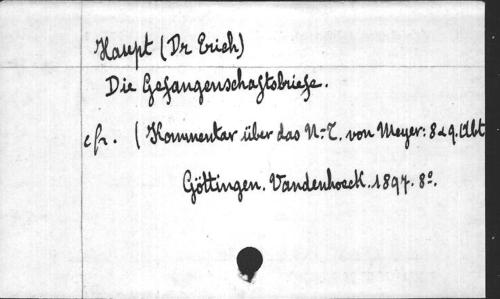 Haupt (Dr Erich)
Die Gefangenschaftsbriefe.
cfr. (Kommentar über das N.-T. von Meyer: 8 & 9. Abt
Göttingen. Vandenhoeck. 1897. 8º.